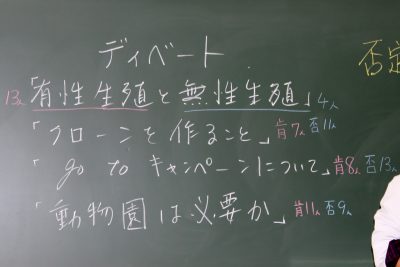 ディベート
否定
13人「有性生殖と無性生殖」4人
「クローンを作ること」肯7人 否11人
「go to キャンペーンについて」肯8人 否13人
「動物園は必要か」肯11人 否9人